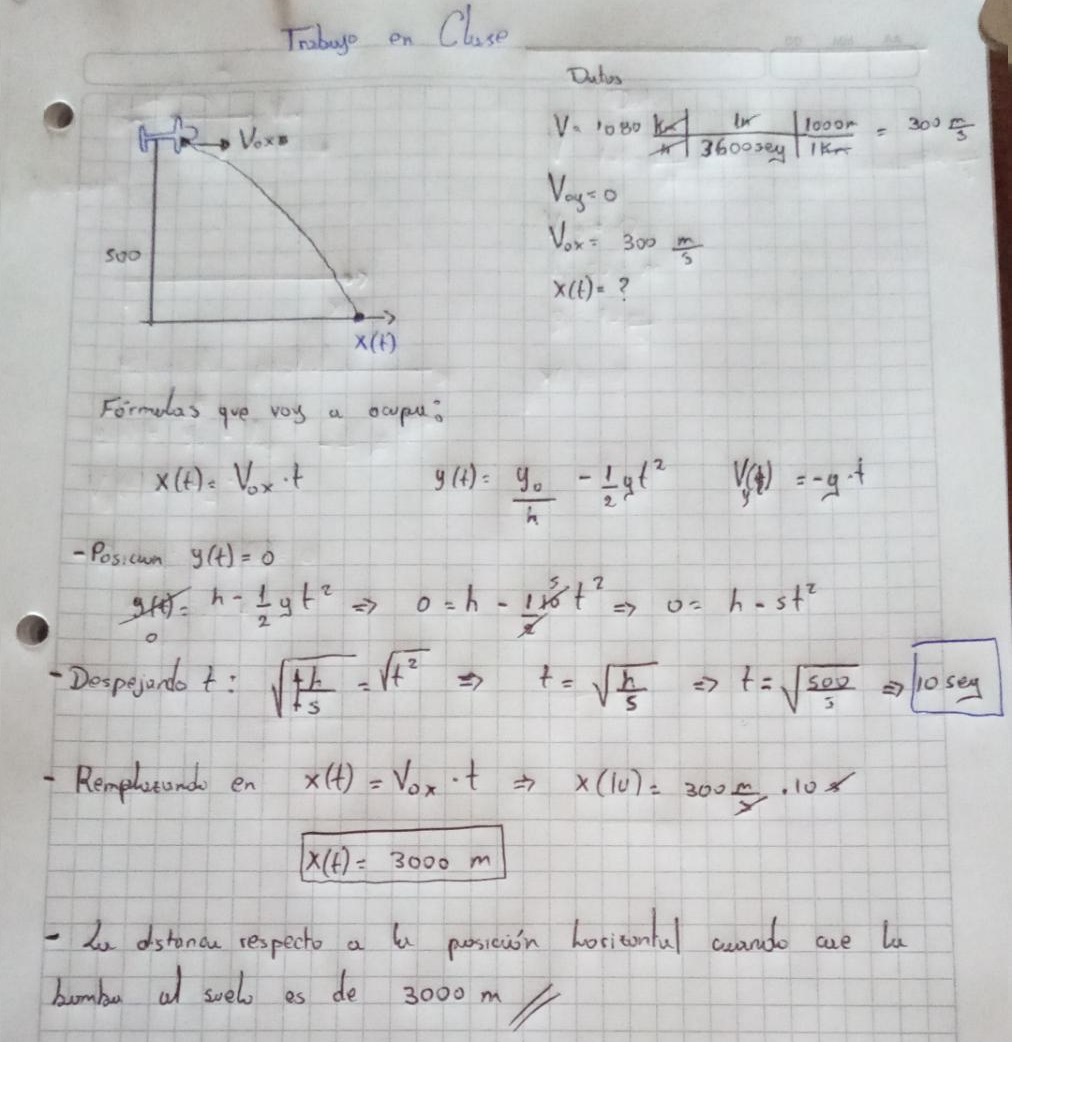 Trabajo en Clase
Datos
V = 1080 km/h | 1h/3600seg | 1000m/1Km = 300 m/s
Voy = 0
Vox = 300 m/s
x(t) = ?
Vox
500
x(t)
Fórmulas que voy a ocupar:
x(t) = Vox · t
y(t) = y₀/h - 1/2 gt²
Vy(t) = -g·t
- Posicion y(t) = 0
y(t) = h - 1/2 g t² ⇒ 0 = h - 1/2 10 5 t² ⇒ 0 = h - 5t²
0
- Despejando t: √(+h/+5) = √t² ⇒ t = √(h/5) ⇒ t = √(500/5) ⇒ 10 seg
- Remplazando en x(t) = Vox · t ⇒ x(10) = 300 m/s · 10 s
x(t) = 3000 m
- La distancia respecto a la posición horizontal cuando cae la
bomba al suelo es de 3000 m //